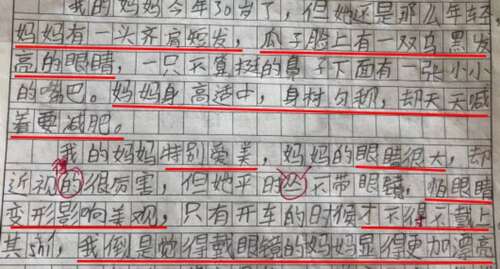 我的妈妈今年30岁了，但她还是那么年轻
妈妈有一头齐肩短发，瓜子脸上有一双乌黑发
亮的眼睛，一只不算挺的鼻子下面有一张小小
的嘴巴。妈妈身高适中，身材匀称，却天天喊
着要减肥。
我的妈妈特别爱美，妈妈的眼睛很大，却
近视的很厉害，但她平时不带眼镜，怕眼睛
变形影响美观，只有开车的时候才不得不戴上
其shí，我倒是觉得戴眼镜的妈妈显得更加漂亮